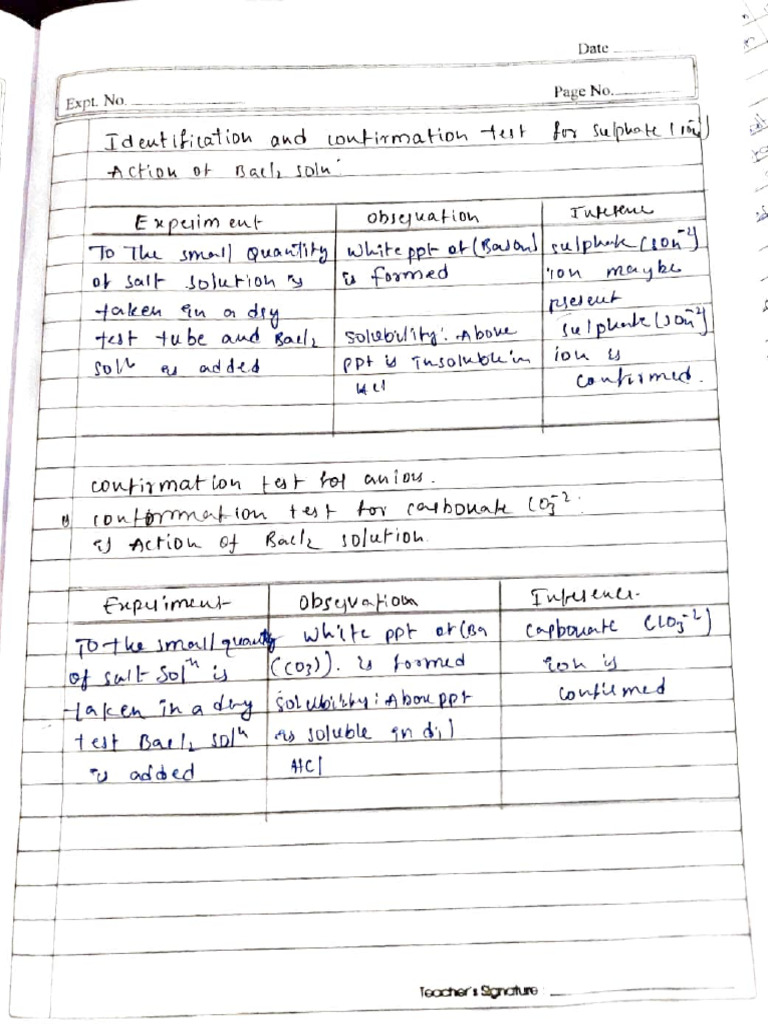 Date
Expt. No.
Page No.
Identification and confirmation test for sulphate
Action of Bacl2 soln
Experiment Observation Inference
To The small Quantity white ppt of (Baso4) sulphate (so4-2)
of salt solution is is formed ion maybe
taken in a dry present
test tube and Bacl2 solubility: Above sulphate (so4-2)
soln is added ppt is insoluble in ion is
Hcl confirmed.
confirmation test for anions.
1) confirmation test for carbonate CO3-2.
i) Action of Bacl2 solution.
Experiment Observation Inference.
To the small quantity white ppt of (Ba carbonate (CO3-2)
of salt Soln is (CO3)). is formed ion is
taken in a dry solubility: Above ppt confirmed
test Bacl2 soln is soluble in dil
is added HCl
Teacher's Signature